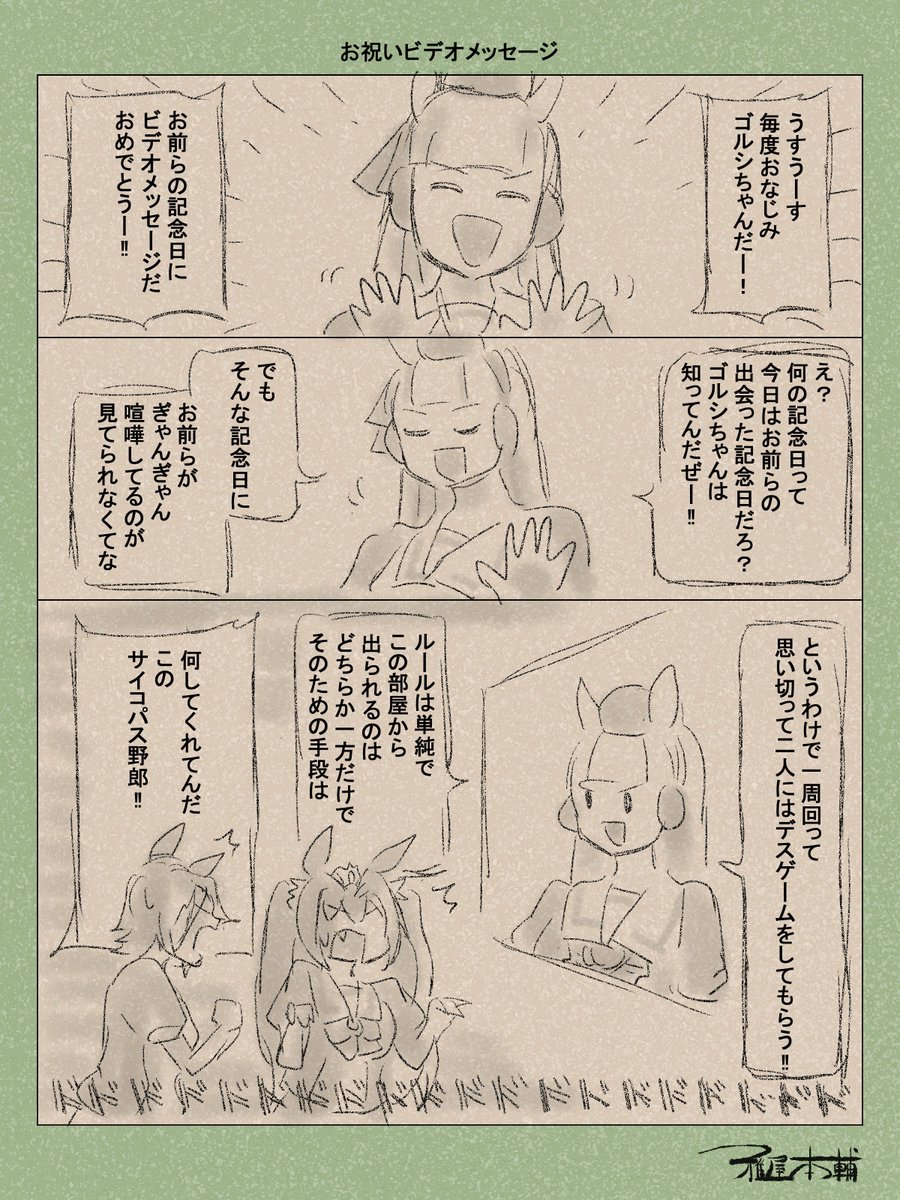 お祝いビデオメッセージ
うすうーす
毎度おなじみ
ゴルシちゃんだー！
お前らの記念日に
ビデオメッセージだ
おめでとうー‼
え？
何の記念日って
今日はお前らの
出会った記念日だろ？
ゴルシちゃんは
知ってんだぜー‼
でも
そんな記念日に
お前らが
ぎゃんぎゃん
喧嘩してるのが
見てられなくてな
というわけで一周回って
思い切って二人にはデスゲームをしてもらう‼
ルールは単純で
この部屋から
出られるのは
どちらか一方だけで
そのための手段は
何してくれてんだ
この
サイコパス野郎‼